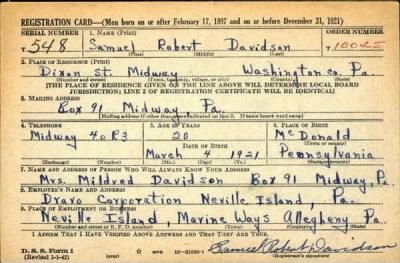 REGISTRATION CARD—(Men born on or after February 17, 1897 and on or before December 31, 1921)
SERIAL NUMBER 1. NAME (Print) ORDER NUMBER
T 548 Samuel Robert Davidson T 10025
(First) (Middle) (Last)
2. PLACE OF RESIDENCE (Print)
Dixon St. Midway Washington co. Pa.
(Number and street) (Town, township, village, or city) (County) (State)
[THE PLACE OF RESIDENCE GIVEN ON THE LINE ABOVE WILL DETERMINE LOCAL BOARD
JURISDICTION; LINE 2 OF REGISTRATION CERTIFICATE WILL BE IDENTICAL]
3. MAILING ADDRESS
Box 91 Midway Pa.
[Mailing address if other than place indicated on line 2. If same insert word same]
4. TELEPHONE 5. AGE IN YEARS 6. PLACE OF BIRTH
Midway 40 R3 20 McDonald
DATE OF BIRTH (Town or county)
March 4 1921 Pennsylvania
(Exchange) (Number) (Mo.) (Day) (Yr.) (State or country)
7. NAME AND ADDRESS OF PERSON WHO WILL ALWAYS KNOW YOUR ADDRESS
Mrs. Mildred Davidson Box 91 Midway, Pa.
8. EMPLOYER'S NAME AND ADDRESS
Dravo Corporation Neville Island, Pa.
9. PLACE OF EMPLOYMENT OR BUSINESS
Neville Island, Marine Ways Allegheny Pa.
(Number and street or R. F. D. number) (Town) (County) (State)
I AFFIRM THAT I HAVE VERIFIED ABOVE ANSWERS AND THAT THEY ARE TRUE.
D. S. S. Form 1
(Revised 1-1-42) Samuel Robert Davidson
(Registrant's signature)